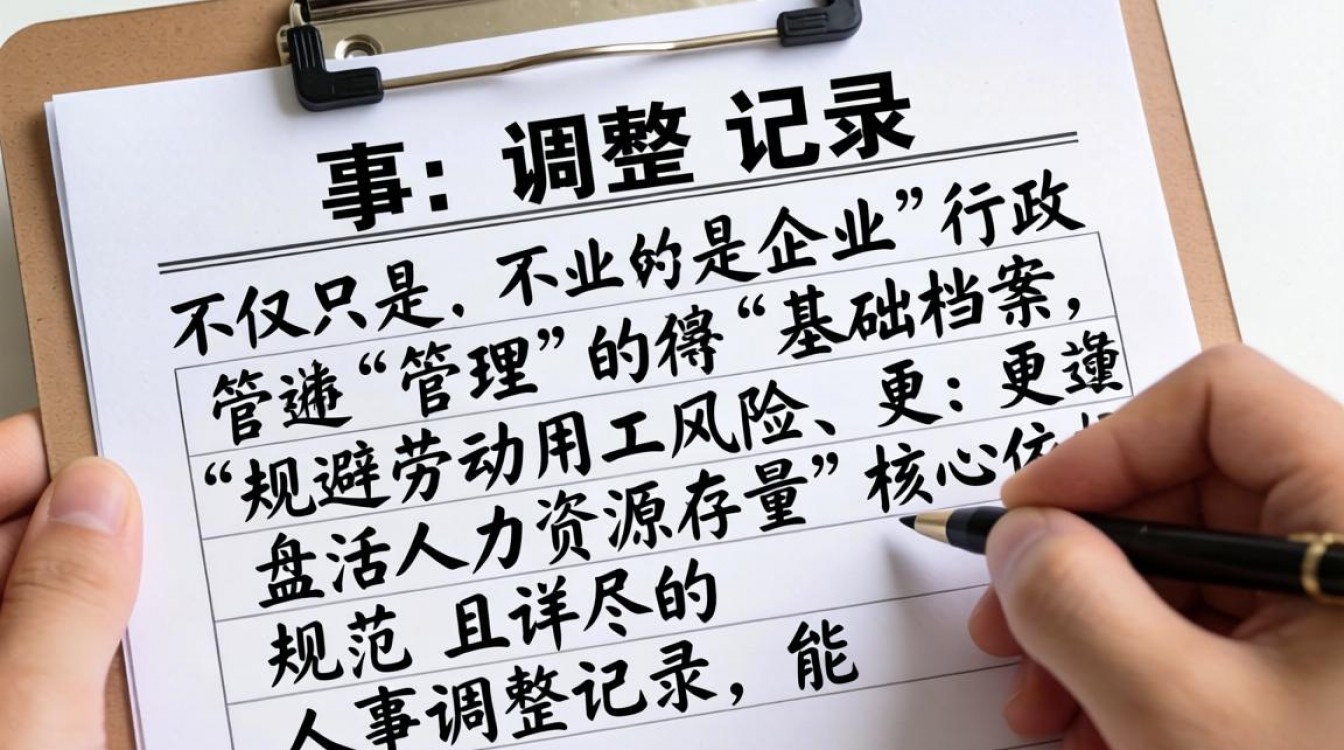 事：调整 记录
不仅只是．不业的是企业”行政
管 “管理”的得“基础档案，
“规避劳动用工风险、更：更
盘活人力资源存量”核心依
规范 且详尽的
人事调整记录，能